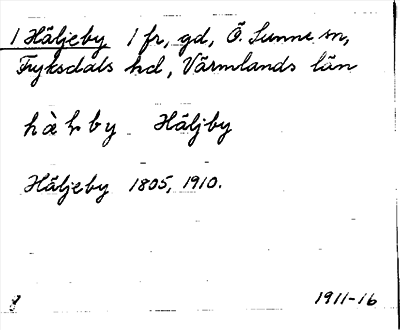 1 Häljeby 1 fr, gd, Ö. Sunne sn,
Fryksdals hd, Värmlands län
by Häljby
Häljeby 1805, 1910.
1911-16